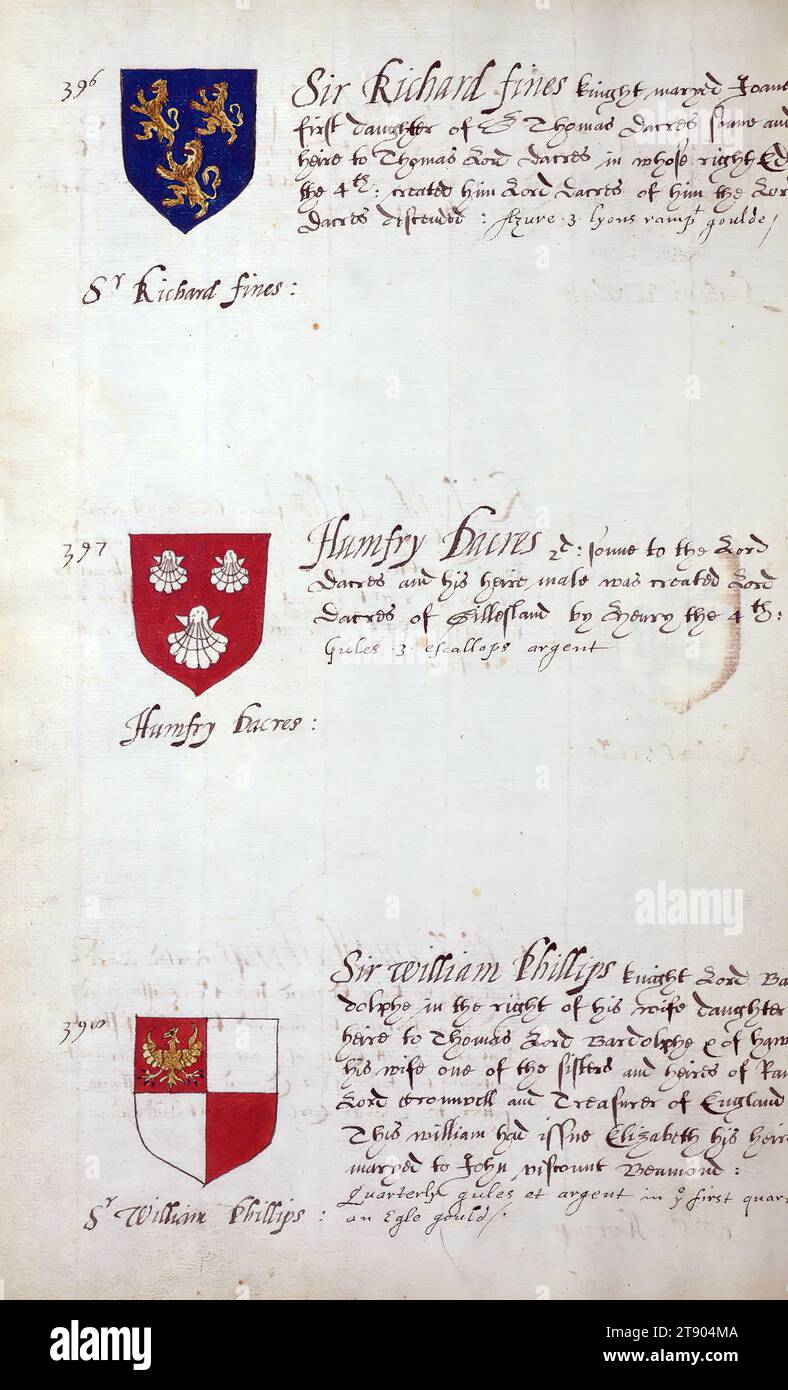 396
Sir Richard fines knight maryed Joane
first daughter of Sr Thomas Dacres sonne and
heire to Thomas Lord Dacres in whose right Ed
the 4th: created him Lord Dacres of him the Lor
Dacres descended: Azure 3 lyons rampt goulde
Sr Richard fines:
397
Humfry Dacres 2d: sonne to the Lord
Dacres and his heire male was created Lord
Dacres of Gillesland by Henry the 4th:
Gules 3 escallops argent
Humfry Dacres:
Sir William Phillips knight Lord Ba
dolphe in the right of his wife daughter
heire to Thomas Lord Bardolphe & of
his wife one of the sisters and heires of
Lord Cromwell and Treasurer of England
This william had issue Elizabeth his heir
maryed to John viscount Beamond:
Quarterly gules et argent in ye first quar
an Egle gould
398
Sr William Phillips:
alamy
alamy
Image ID: 2T904MA
www.alamy.com